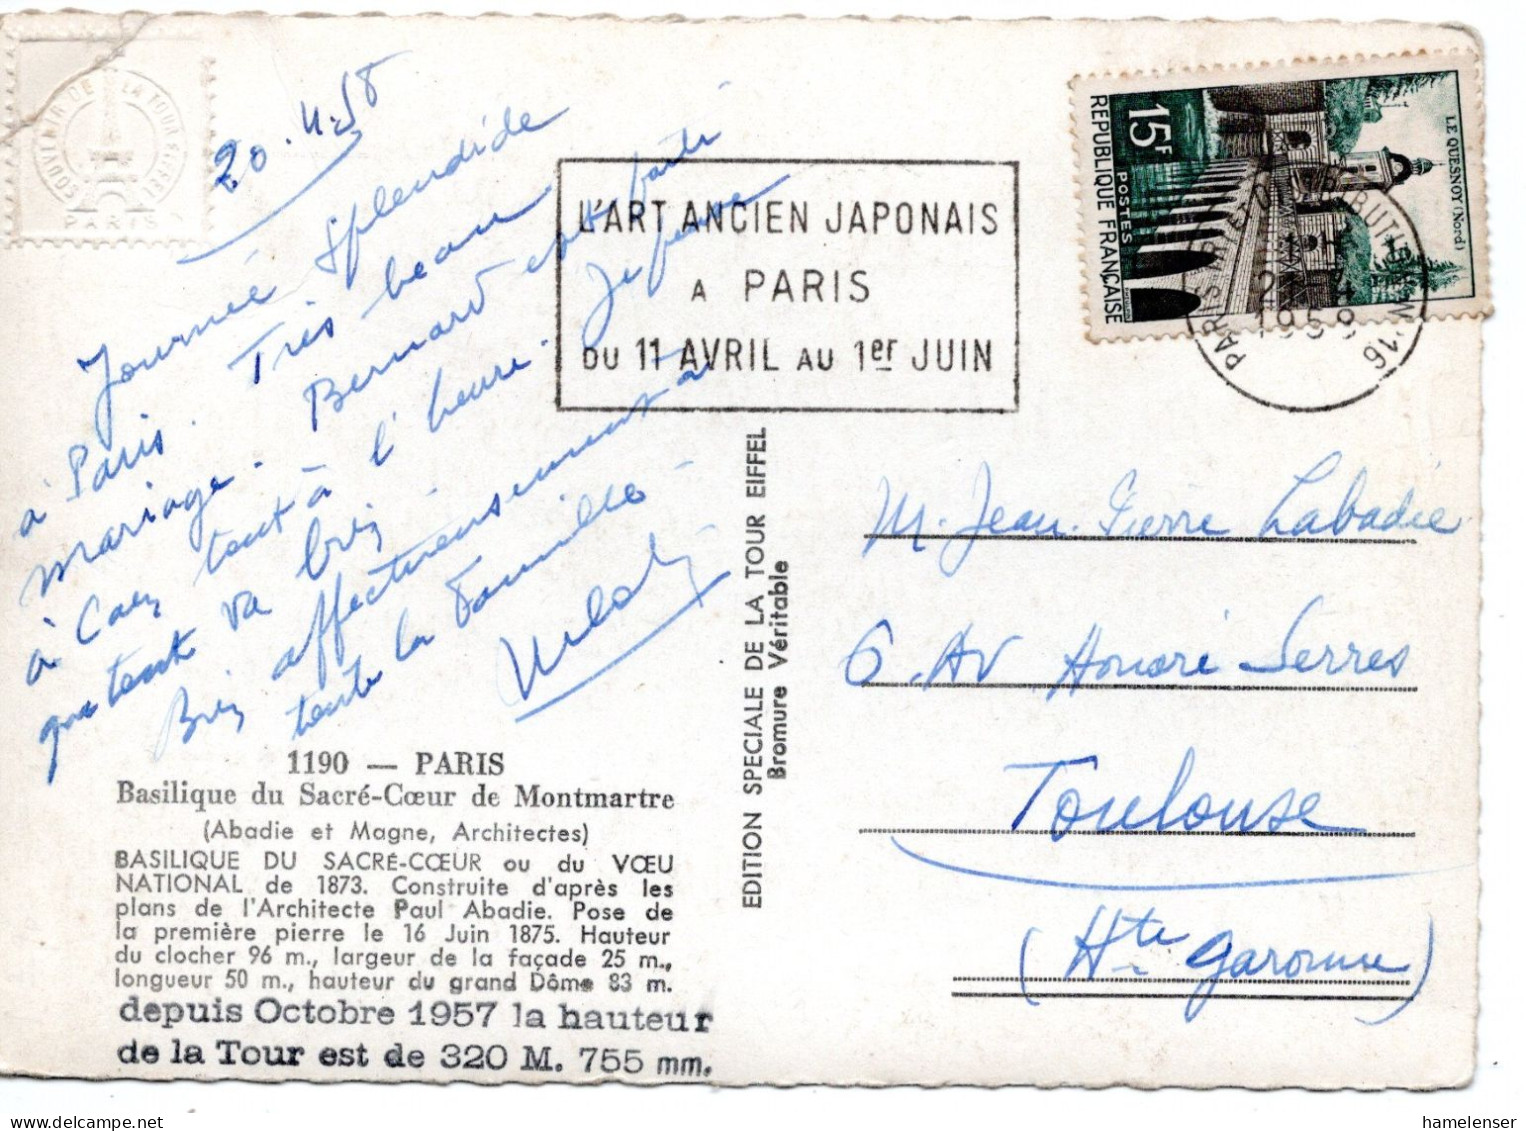 SOUVENIR DE LA TOUR EIFFEL
PARIS
20.4.58
Journée splendide
à Paris. Très beau
mariage. Bernard est parti
à Caen tout à l'heure. Je pense
que tout va bien
Bien affectueusement à
toute la famille
L'ART ANCIEN JAPONAIS
A PARIS
DU 11 AVRIL AU 1er JUIN
15F
POSTES
REPUBLIQUE FRANÇAISE
LE QUESNOY (Nord)
1958
EDITION SPECIALE DE LA TOUR EIFFEL
Bromure Véritable
M. Jean-Pierre Labadie
6. AV Honoré Serres
Toulouse
(Hte Garonne)
1190 — PARIS
Basilique du Sacré-Cœur de Montmartre
(Abadie et Magne, Architectes)
BASILIQUE DU SACRÉ-CŒUR ou du VŒU
NATIONAL de 1873. Construite d'après les
plans de l'Architecte Paul Abadie. Pose de
la première pierre le 16 Juin 1875. Hauteur
du clocher 96 m., largeur de la façade 25 m.,
longueur 50 m., hauteur du grand Dôme 83 m.
depuis Octobre 1957 la hauteur
de la Tour est de 320 M. 755 mm.
hamelenser